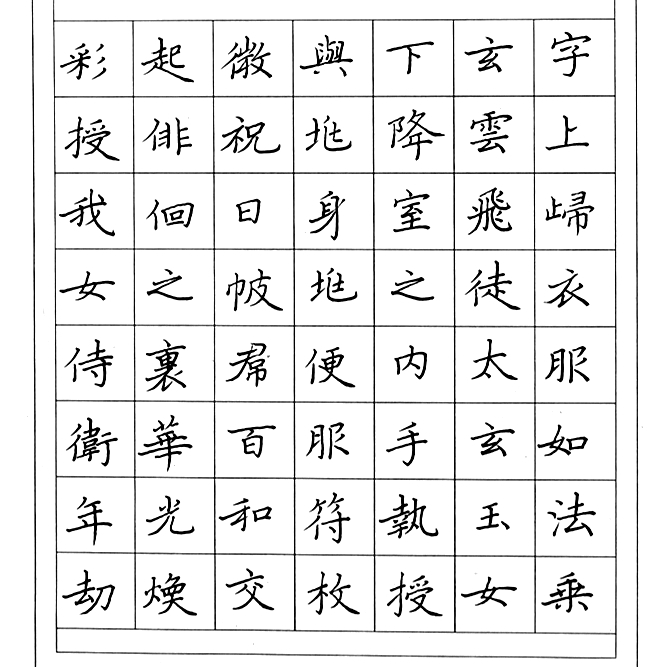 字上㱕衣服如法乘
玄雲飛徒太玄玉女
下降室之内手執授
與兆身兆便服符枚
微祝曰帔帬百和交
起俳佪之裏華光煥
彩授我女侍衛年劫